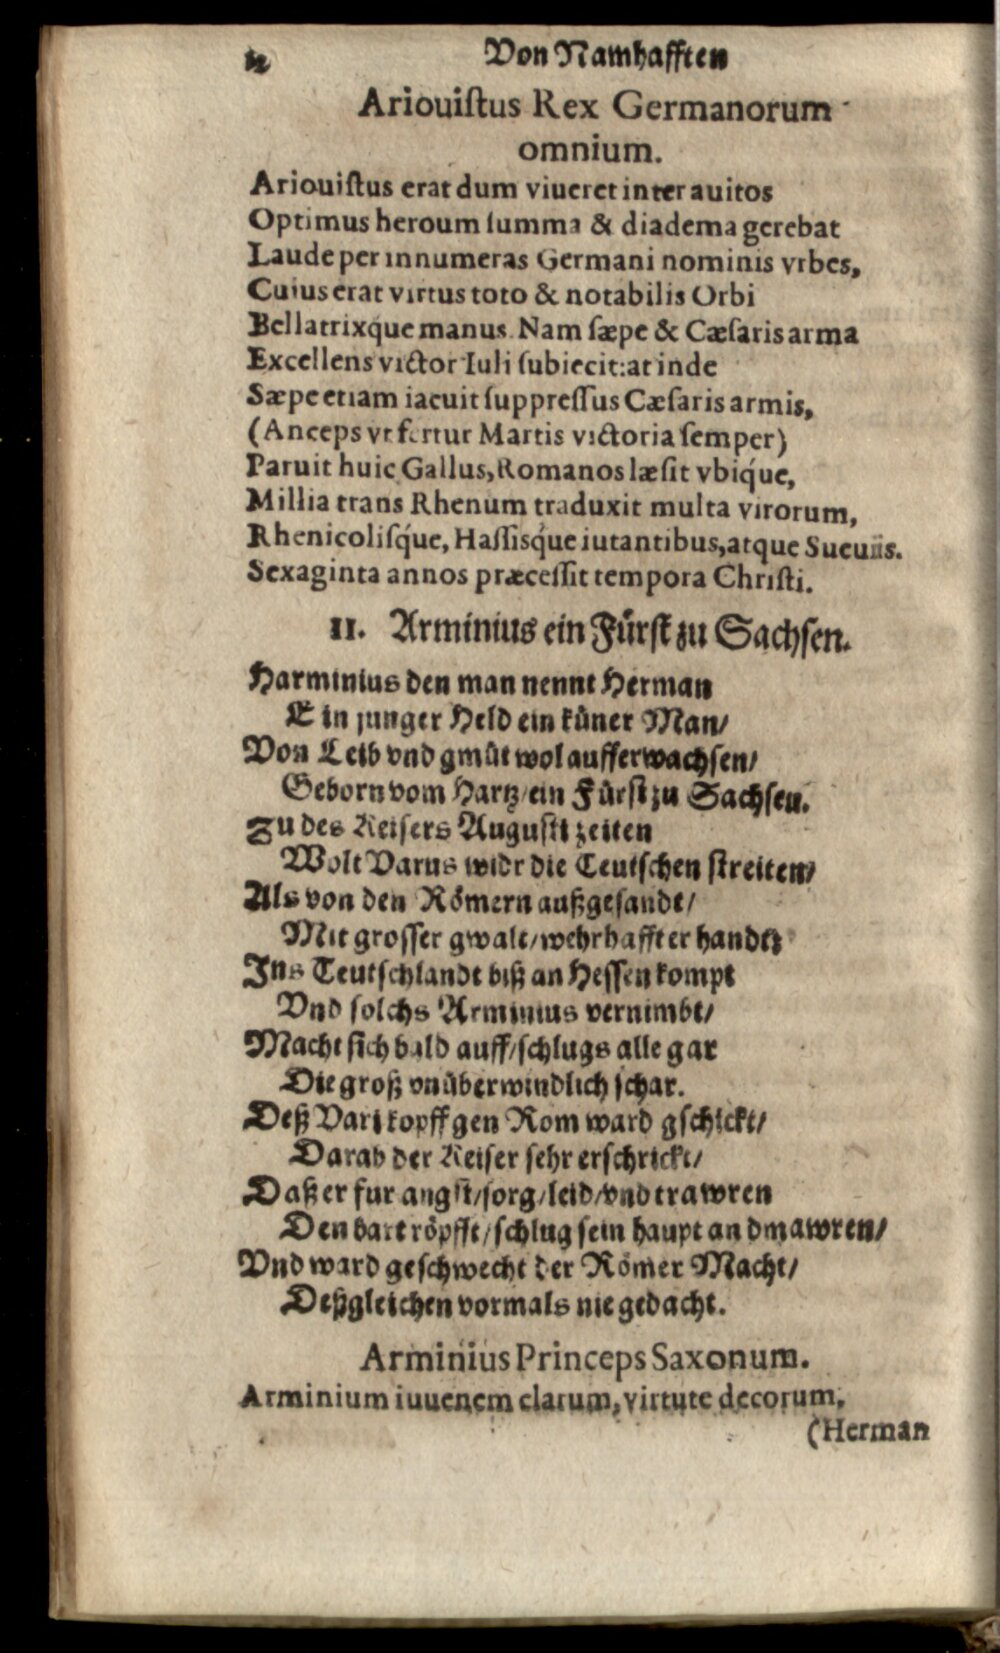 Von Namhafften
Ariouiſtus Rex Germanorum
omnium.
Ariouiſtus erat dum viueret inter auitos
Optimus heroum ſumma & diadema gerebat
Laude per innumeras Germani nominis vrbes,
Cuius erat virtus toto & notabilis Orbi
Bellatrixq́ue manus. Nam ſæpe & Cæſaris arma
Excellens victor Iuli ſubiecit: at inde
Sæpe etiam iacuit ſuppreſſus Cæſaris armis,
(Anceps vt fertur Martis victoria ſemper)
Paruit huic Gallus, Romanos læſit vbiq́ue,
Millia trans Rhenum traduxit multa virorum,
Rhenicoliſq́ue, Haſſisq́ue iutantibus, atque Sueuiis.
Sexaginta annos præceſſit tempora Chriſti.
II. Arminius ein Fürſt zu Sachſen.
Harminius den man nennt Herman
Ein junger Held ein küner Man/
Von Leib vnd gmüt wol aufferwachſen/
Geborn vom Hartz/ein Fürſt zu Sachſen.
Zu des Keiſers Auguſti zeiten
Wolt Varus widr die Teutſchen ſtreiten/
Als von den Römern außgeſandt/
Mit groſſer gwalt/wehrhaffter handt;
Ins Teutſchlandt biß an Heſſen kompt
Vnd ſolchs Arminius vernimbt/
Macht ſich bald auff/ſchlugs alle gar
Die groß vnüberwindlich ſchar.
Deß Vari kopff gen Rom ward gſchickt/
Darab der Keiſer ſehr erſchrickt/
Daß er fur angſt/ſorg/leid/vnd trawren
Den bart röpfft/ſchlug ſein haupt an dmawren/
Vnd ward geſchwecht der Römer Macht/
Deßgleichen vormals nie gedacht.
Arminius Princeps Saxonum.
Arminium iuuenem clarum, virtute decorum,
(Herman